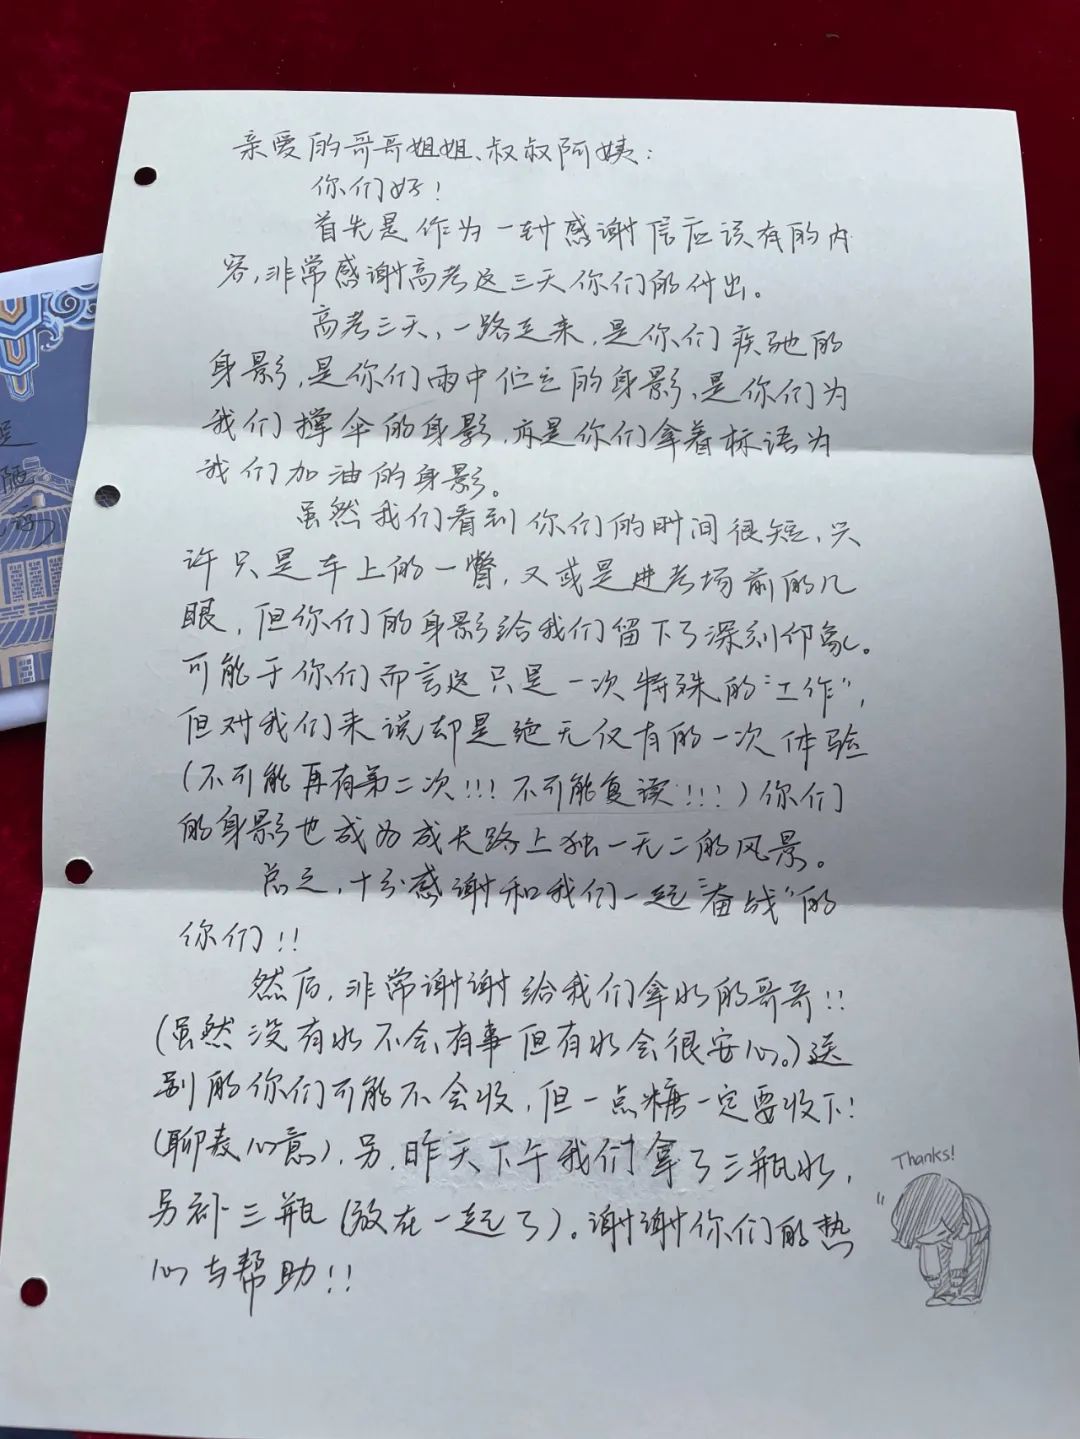 亲爱的哥哥姐姐、叔叔阿姨：
你们好！
首先是作为一封感谢信应该有的内
容，非常感谢高考这三天你们的付出。
高考三天，一路走来，是你们疾驰的
身影，是你们雨中伫立的身影，是你们为
我们撑伞的身影，亦是你们拿着标语为
我们加油的身影。
虽然我们看到你们的时间很短，兴
许只是车上的一瞥，又或是进考场前的几
眼，但你们的身影给我们留下了深刻印象。
可能于你们而言这只是一次特殊的"工作"，
但对我们来说却是绝无仅有的一次体验
(不可能再有第二次!!! 不可能复读!!!)你们
的身影也成为成长路上独一无二的风景。
总之，十分感谢和我们一起"奋战"的
你们!!
然后，非常谢谢给我们拿水的哥哥!!
(虽然没有水不会有事但有水会很安心。)送
别的你们可能不会收，但一点糖一定要收下！
(聊表心意)，另，昨天下午我们拿了三瓶水，
另补三瓶(放在一起了)。谢谢你们的热
心与帮助!!
Thanks!